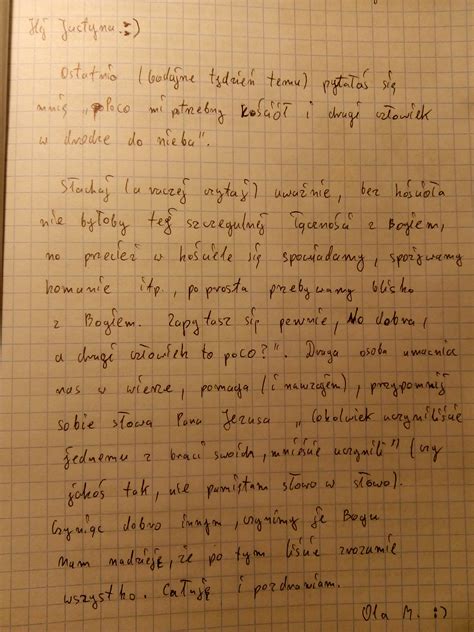 Hej Justyna :)
Ostatnio (bodajże tydzień temu) pytałaś się
mnie „Poco mi potrzebny kościół i drugi człowiek
w drodze do nieba".
Słuchaj (a raczej czytaj) uważnie, bez kościoła
nie byłoby tej szczegulnej łączności z Bogiem,
no przecież w kościele się spowiadamy, spożywamy
komunie itp., poprostu przebywamy blisko
z Bogiem. Zapytasz się pewnie, „No dobra,
a drugi człowiek to poco?". Druga osoba umacnia
nas w wierze, pomaga (i nawzajem), przypomnij
sobie słowa Pana Jezusa „Cokolwiek uczyniliście
jednemu z braci swoich, mnieście uczynili" (czy
jakoś tak, nie pamiętam słowo w słowo).
Czyniąc dobro innym, czynimy je Bogu
Mam nadzieję, że po tym liście zrozumie
wszystko. Całuję i pozdrawiam.
Ola M. :)